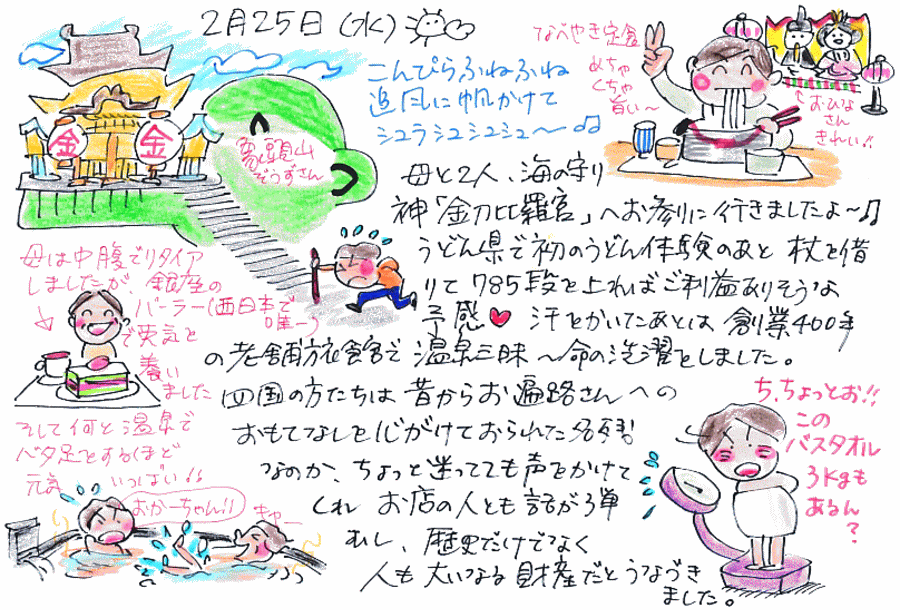 2月25日(水)
こんぴらふねふね
追風に帆かけて
シュラシュシュシュ〜♪♫
なべやき定食
めちゃ
くちゃ
旨い〜
おひな
さん
きれい!!
金
金
象頭山
ぞうずさん
母と2人、海の守り
神「金刀比羅宮」へお参りに行きましたよ〜♫
うどん県で初のうどん体験のあと杖を借
りて785段を上ればご利益ありそうな
予感♥ 汗をかいたあとは創業400年
の老舗旅館で温泉三昧〜命の洗濯をしました。
四国の方たちは昔からお遍路さんへの
おもてなしを心がけておられた名残り
なのか、ちょっと迷ってても声をかけて
くれ お店の人とも話が弾
むし、歴史だけでなく
人も大いなる財産だとうなづき
ました。
母は中腹でリタイア
しましたが、銀座の
パーラー(西日本で
唯一)
で英気を
養い
ました
そして何と温泉で
バタ足をするほど
元気 いっぱい!!
おかーちゃん!!
キャー
ち、ちょっとお!!
この
バスタオル
3kgも
あるん
?